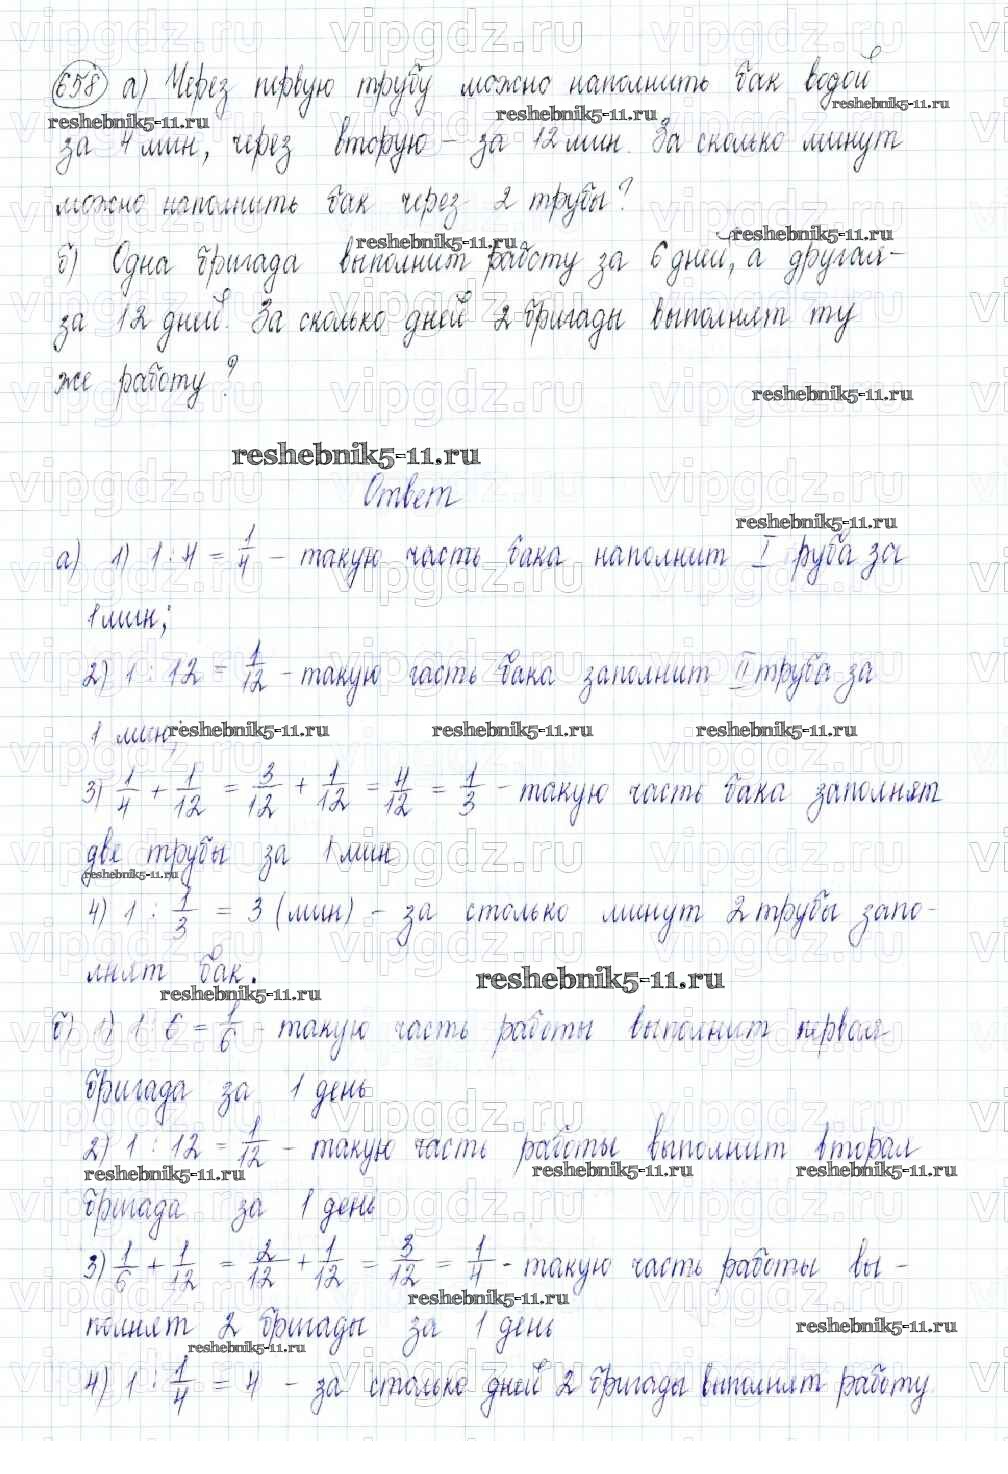 658 а) Через первую трубу можно наполнить бак водой
за 4 мин, через вторую – за 12 мин. За сколько минут
можно наполнить бак через 2 трубы?
б) Одна бригада выполнит работу за 6 дней, а другая –
за 12 дней. За сколько дней 2 бригады выполнят ту
же работу?
reshebnik5-11.ru
Ответ
а) 1) 1 : 4 = 1/4 – такую часть бака наполнит I руба за
1 мин;
2) 1 : 12 = 1/12 – такую часть бака заполнит II труба за
1 мин;
3) 1/4 + 1/12 = 3/12 + 1/12 = 4/12 = 1/3 – такую часть бака заполнят
две трубы за 1 мин
4) 1 : 1/3 = 3 (мин) – за столько минут 2 трубы запо-
лнят бак.
reshebnik5-11.ru
б) 1) 1 : 6 = 1/6 – такую часть работы выполнит первая
бригада за 1 день
2) 1 : 12 = 1/12 – такую часть работы выполнит вторая
бригада за 1 день
3) 1/6 + 1/12 = 2/12 + 1/12 = 3/12 = 1/4 – такую часть работы вы-
полнят 2 бригады за 1 день
4) 1 : 1/4 = 4 – за столько дней 2 бригады выполнят работу